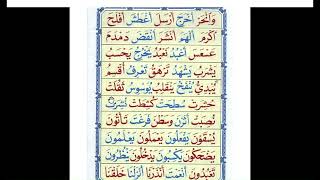 وَانْحَرْ اَخْرَجَ اَرْسَلَ اَغْطَشَ اَفْلَحَ
اَكْرَمَ اَلْهَمَ اَنْشَرَ اَنْقَضَ دَمْدَمَ
عَسْعَسَ اَعْبُدُ نَعْبُدُ يَخْرُجُ يَحْسَبُ
يَشْرَبُ يَشْهَدُ تَرْهَقُ تَعْرِفُ اُقْسِمُ
يُبْدِئُ يُنْفَخُ يَنْقَلِبُ يُوَسْوِسُ ثَقُلَتْ
حُشِرَتْ سُطِحَتْ كُشِطَتْ نُشِرَتْ
نُصِبَتْ اَثَرْنَ وَسَطْنَ فَرَغْتَ تَاْتُوْنَ
يُسْقَوْنَ يَفْعَلُوْنَ يَعْمَلُوْنَ يَعْلَمُوْنَ
يَضْحَكُوْنَ يَكْسِبُوْنَ يَدْخُلُوْنَ يَنْظُرُوْنَ
تَعْبُدُوْنَ اَنْعَمْتَ اَنْذَرْنَا اَنْزَلْنَا خَلَقْنَا